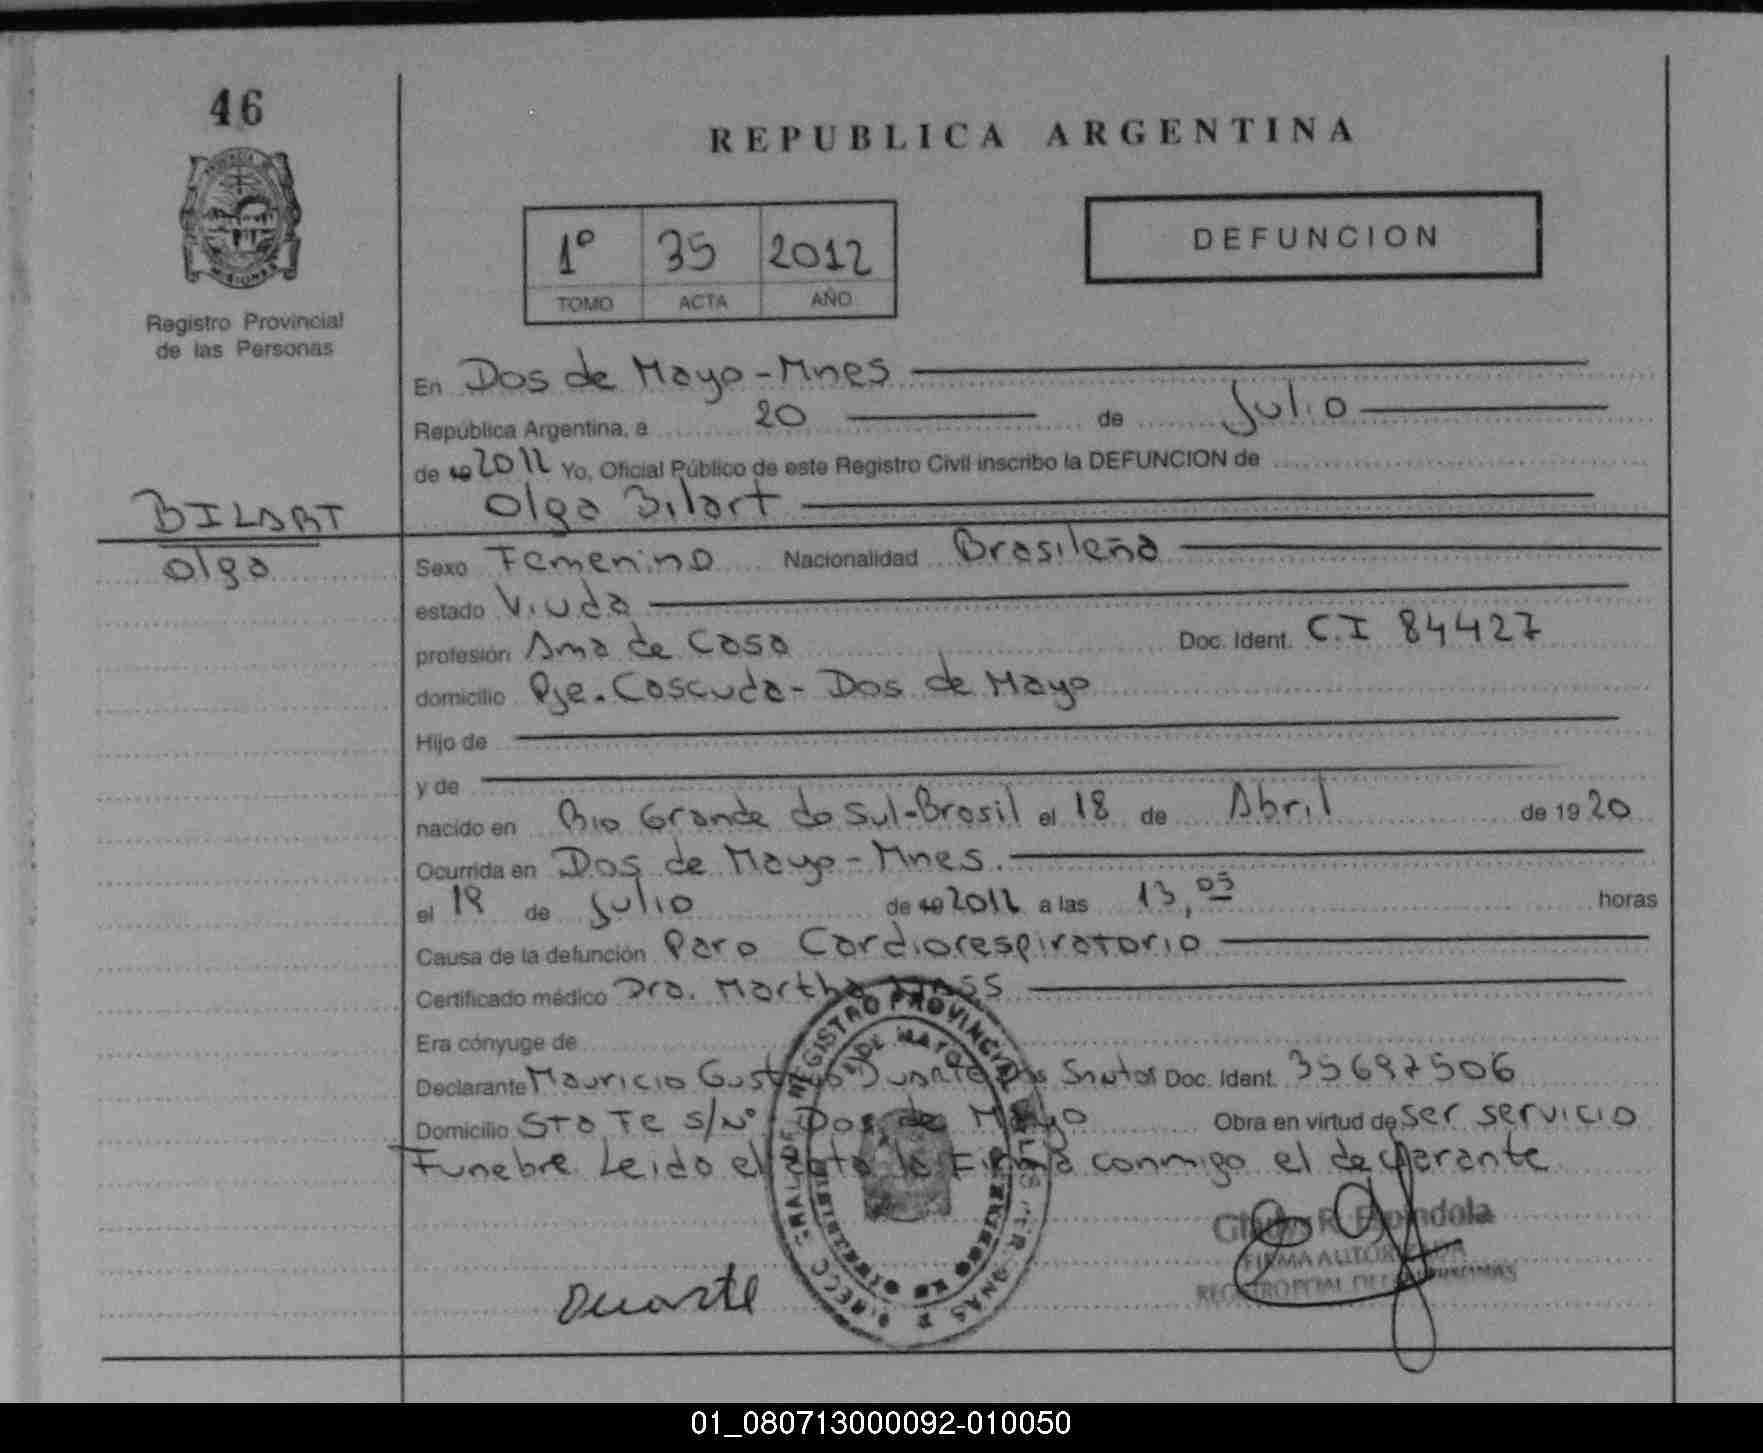 46
REPUBLICA ARGENTINA
1º 35 2012
TOMO ACTA AÑO
DEFUNCION
Registro Provincial
de las Personas
En Dos de Mayo-Mnes
República Argentina, a 20 de Julio
de 19 2012 Yo, Oficial Público de este Registro Civil inscribo la DEFUNCION de
Olga Bilart
BILART
Olga
Sexo Femenino Nacionalidad Brasileña
estado Viuda
profesión Ama de Casa Doc. Ident. C.I 84427
domicilio Pje. Cascuda - Dos de Mayo
Hijo de
y de
nacido en Rio Grande do Sul-Brasil el 18 de Abril de 1920
Ocurrida en Dos de Mayo-Mnes.
el de Julio de 19 2012 a las 13,05 horas
Causa de la defunción Paro Cardiorespiratorio
Certificado médico Dra. Martha
Era cónyuge de
Declarante Mauricio Gustavo Duarte Dos Santos Doc. Ident. 35697506
Domicilio Sta Fe s/Nº Dos de Mayo Obra en virtud de ser servicio
Funebre. Leido el acta la Firma conmigo el declarante
REGISTRO PROVINCIAL DE LAS PERSONAS
Gladys R. Espindola
FIRMA AUTORIZADA
REGISTRO PCIAL DE LAS PERSONAS
Duarte
01_080713000092-010050